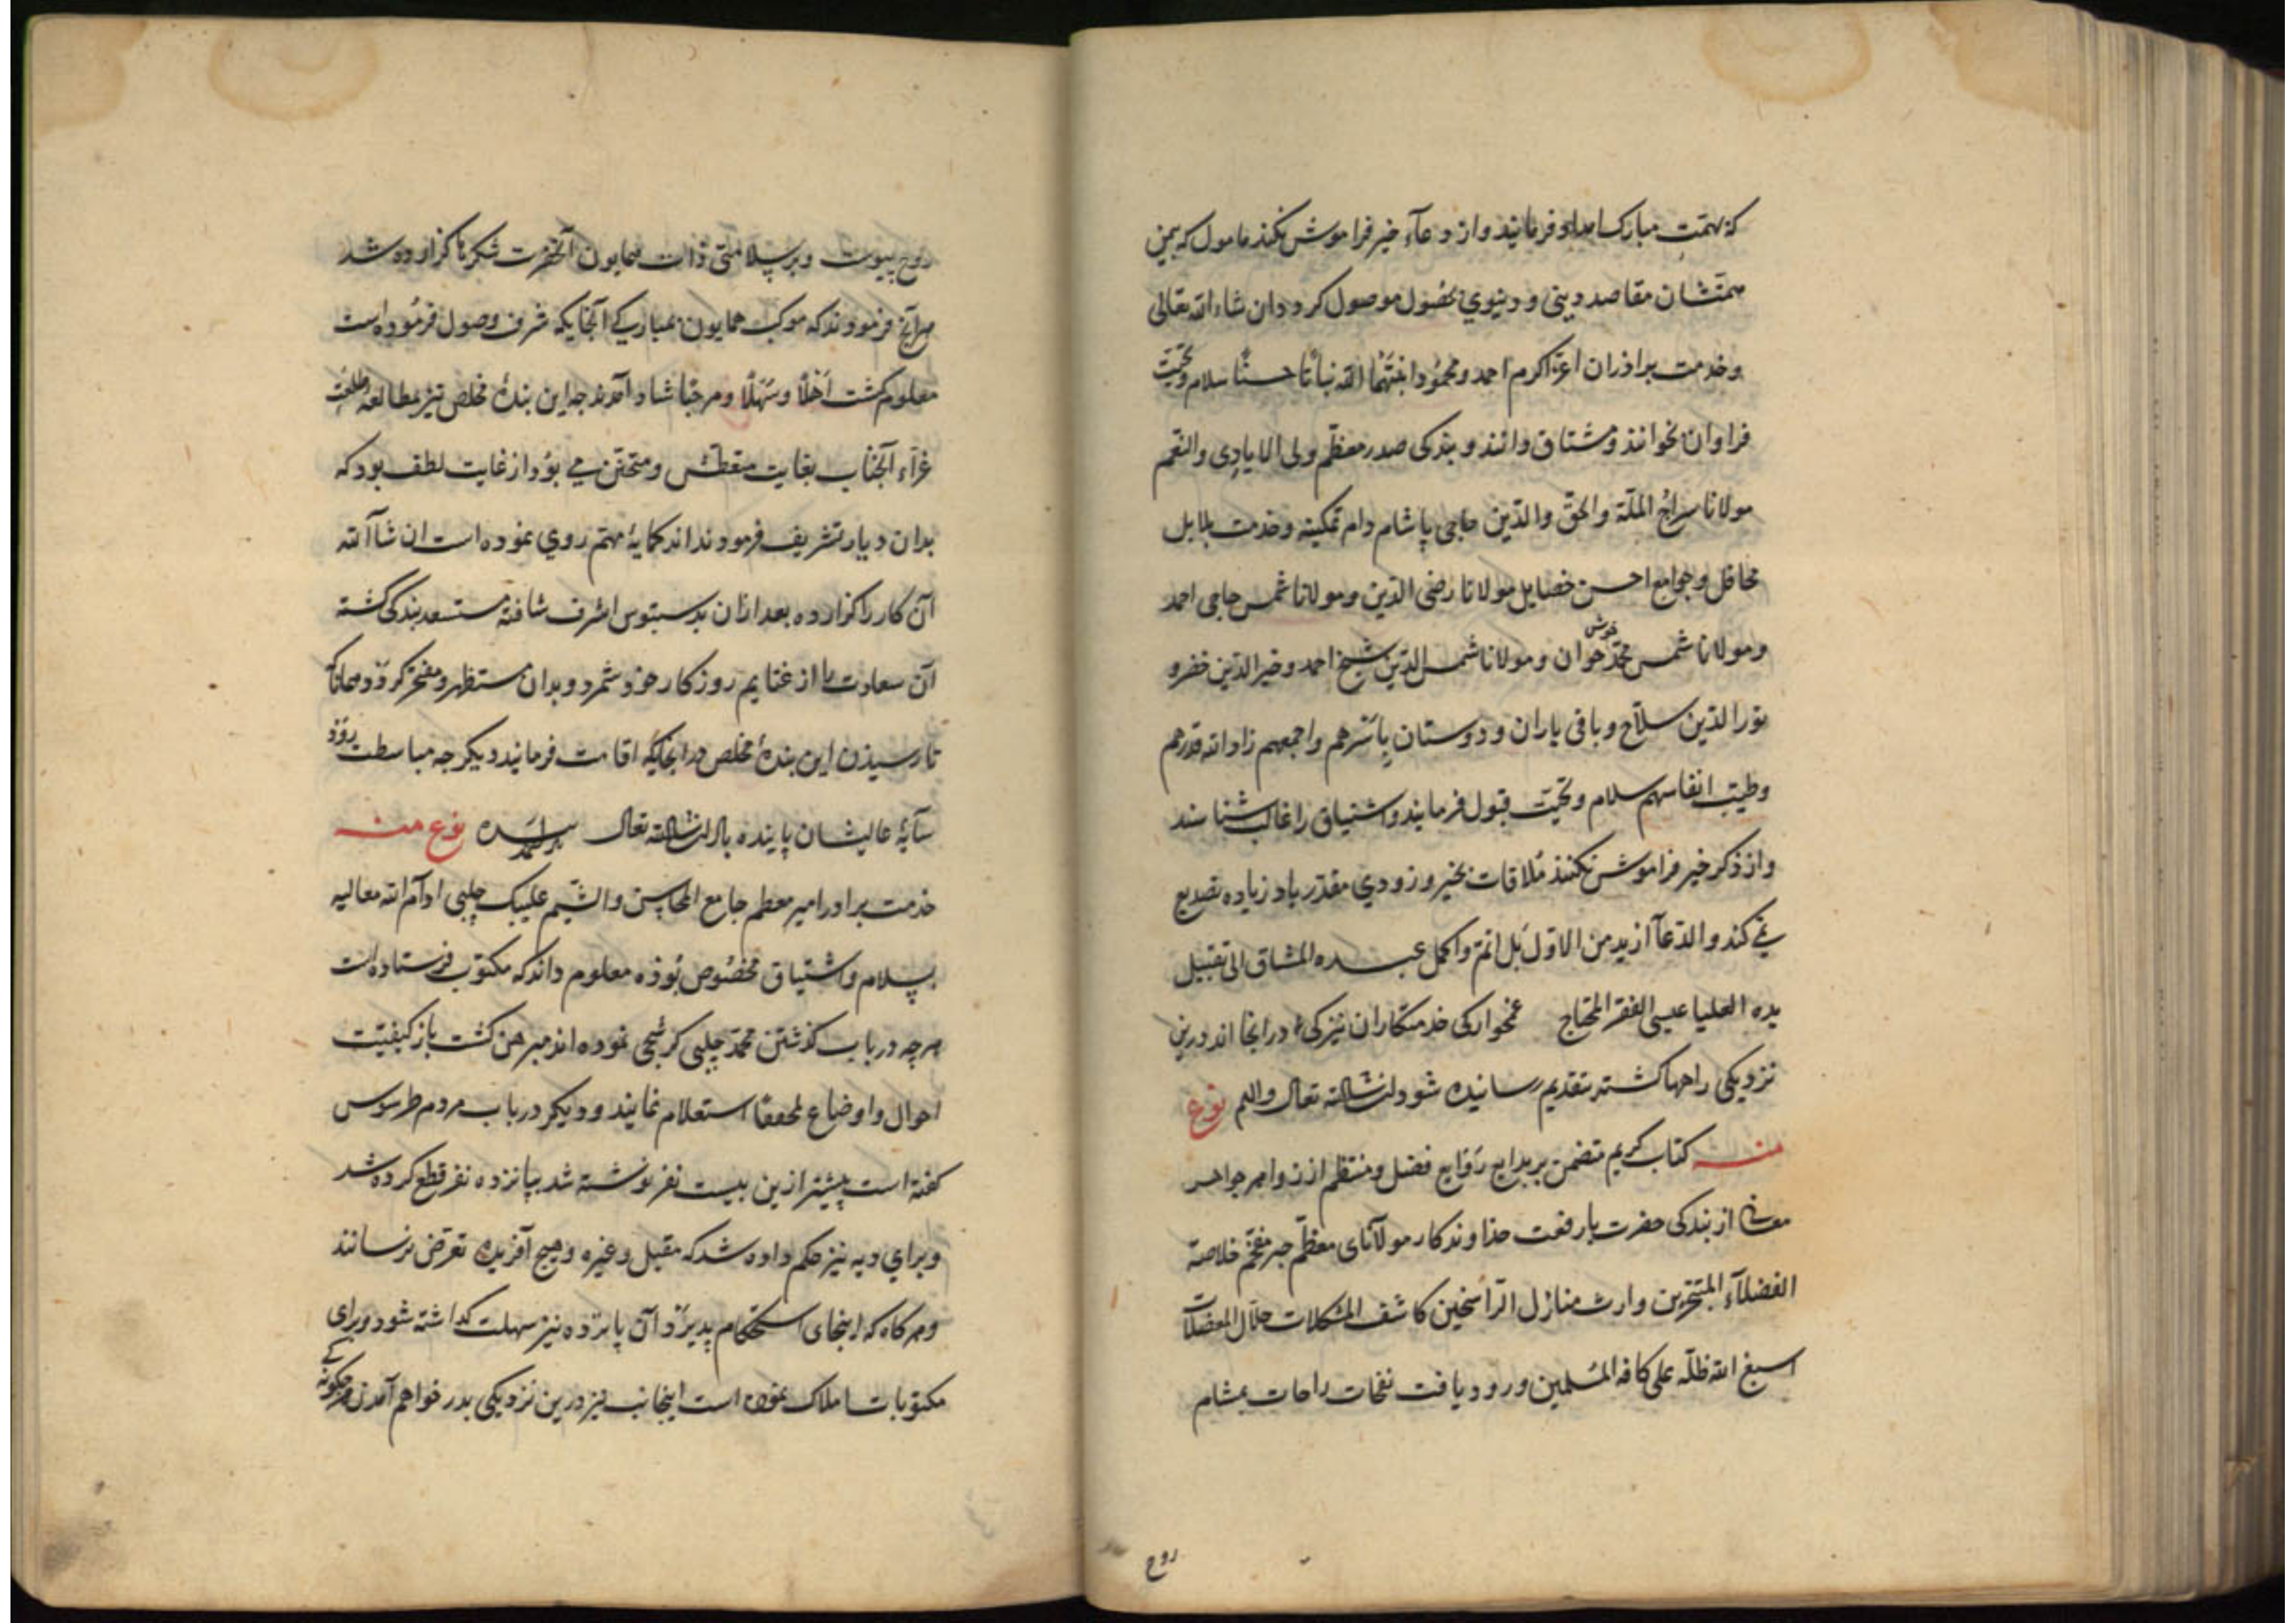 که بهمت مبارک امداد فرمایند و از دعآء خیر فراموش نکنند مامول که بیمن
همتشان مقاصد دینی و دنیوي بحصول موصول کردد ان شاء الله تعالی
وخدمت براذران اعزّ اکرم احمد ومحمود انبتهما الله نباتًا حسنًا سلام وتحیّت
فراوان بخوانند ومشتاق دانند و بندکی صدر معظّم ولی الایادی والنعم
مولانا سراج الملّة والحق والدّین حاجی پاشا دام تمکینه وخدمت بلابل
محافل وجوامع احسن خصایل مولانا رضی الدّین ومولانا شمس حاجی احمد
ومولانا شمس محمّد خوش خوان ومولانا شمس الدّین شیخ احمد وخیر الدّین خضر و
نور الدّین سلاّح و باقی یاران و دوستان بأسرهم واجمعهم زاد الله قدرهم
وطیّب انفاسهم سلام و تحیّت قبول فرمایند واشتیاق را غالب شناسند
واز ذکر خیر فراموش نکنند ملاقات بخیر و زودي مقدّر باد زیاده تصدیع
نمی کند والدّعآ ازید من الاوّل بل اتمّ واکمل عبده المشتاق الی تقبیل
یده العلیا عیسی الفقیر المحتاج غمخوارکی خدمتکاران نیز کی در انجا اند درین
نزدیکی راهها کشته بتقدیم رسانیده شود ان شاالله تعالی والسلم نوع
منه کتاب کریم متضمن بر بدایع روایع فضل ومنتظم از زواهر جواهر
معانی از بندکی حضرت بارفعت خداوندکار مولانای معظّم حبر مفخّم خلاصة
الفضلآء المتبحّرین وارث منازل الرّاسخین کاشف المشکلات حلاّل المعضلات
اسبغ الله ظلّه علی کافه المسلمین ورود یافت نفحات راحات بمشام
روح
روح پیوست و بر سلامتی ذات همایون آنحضرت شکرها کزارده شد
هرآنچ فرمودند که موکب همایون بمبارکی آنجایکه شرف وصول فرموده است
معلوم کشت اهلاً وسهلاً ومرحبا شاد آمدند جه این بندهٔ مخلص نیز بمطالعه طلعت
غرّاء آنجناب بغایت متعطّش ومتحنّن می بود از غایت لطف بود که
بدان دیار تشریف فرمودند اندک مایهٔ مهم روي نموده است ان شاالله
آن کار را کزارده بعد ازان بدستبوس اشرف شتافته مستسعد بندکی کشته
آن سعادت را از غنایم روزکار خود شمرد و بدان مستظهر ومفتخر کردد همانا که
تا رسیذن این بندهٔ مخلص در انجایکه اقامت فرمایند دیکر جه مباسطت روَد
سایهٔ عالیشان پاینده باد ان شاالله تعالی نوع منه
خدمت براذر امیر معظم جامع المحاسن والشّیم علیبک چلبی ادام الله معالیه
بسلام واشتیاق مخصوص بوذه معلوم داند که مکتوب فرستاده است
هرچه در باب کذشتن محمّد چلبی کرمیجی نموده اند مبرهن کشت باز کیفیّت
احوال واوضاع محققًا استعلام نمایند ودیکر در باب مردم طرسوس
کفته است پیشتر ازین بیست نفر نوشته شد بپانزده نفر قطع کرده شد
وبراي دیه نیز حکم داده شد که مقبل وغیره وهیچ آفریده تعرض نرسانند
وهرکاه که اینجای استحکام پذیرد آن پانزده نیز سهلت کذاشته شود وبرای
مکتوبات املاک نموده است اینجانب نیز درین نزدیکی بدر خواهم آمدن هرچکونه کی